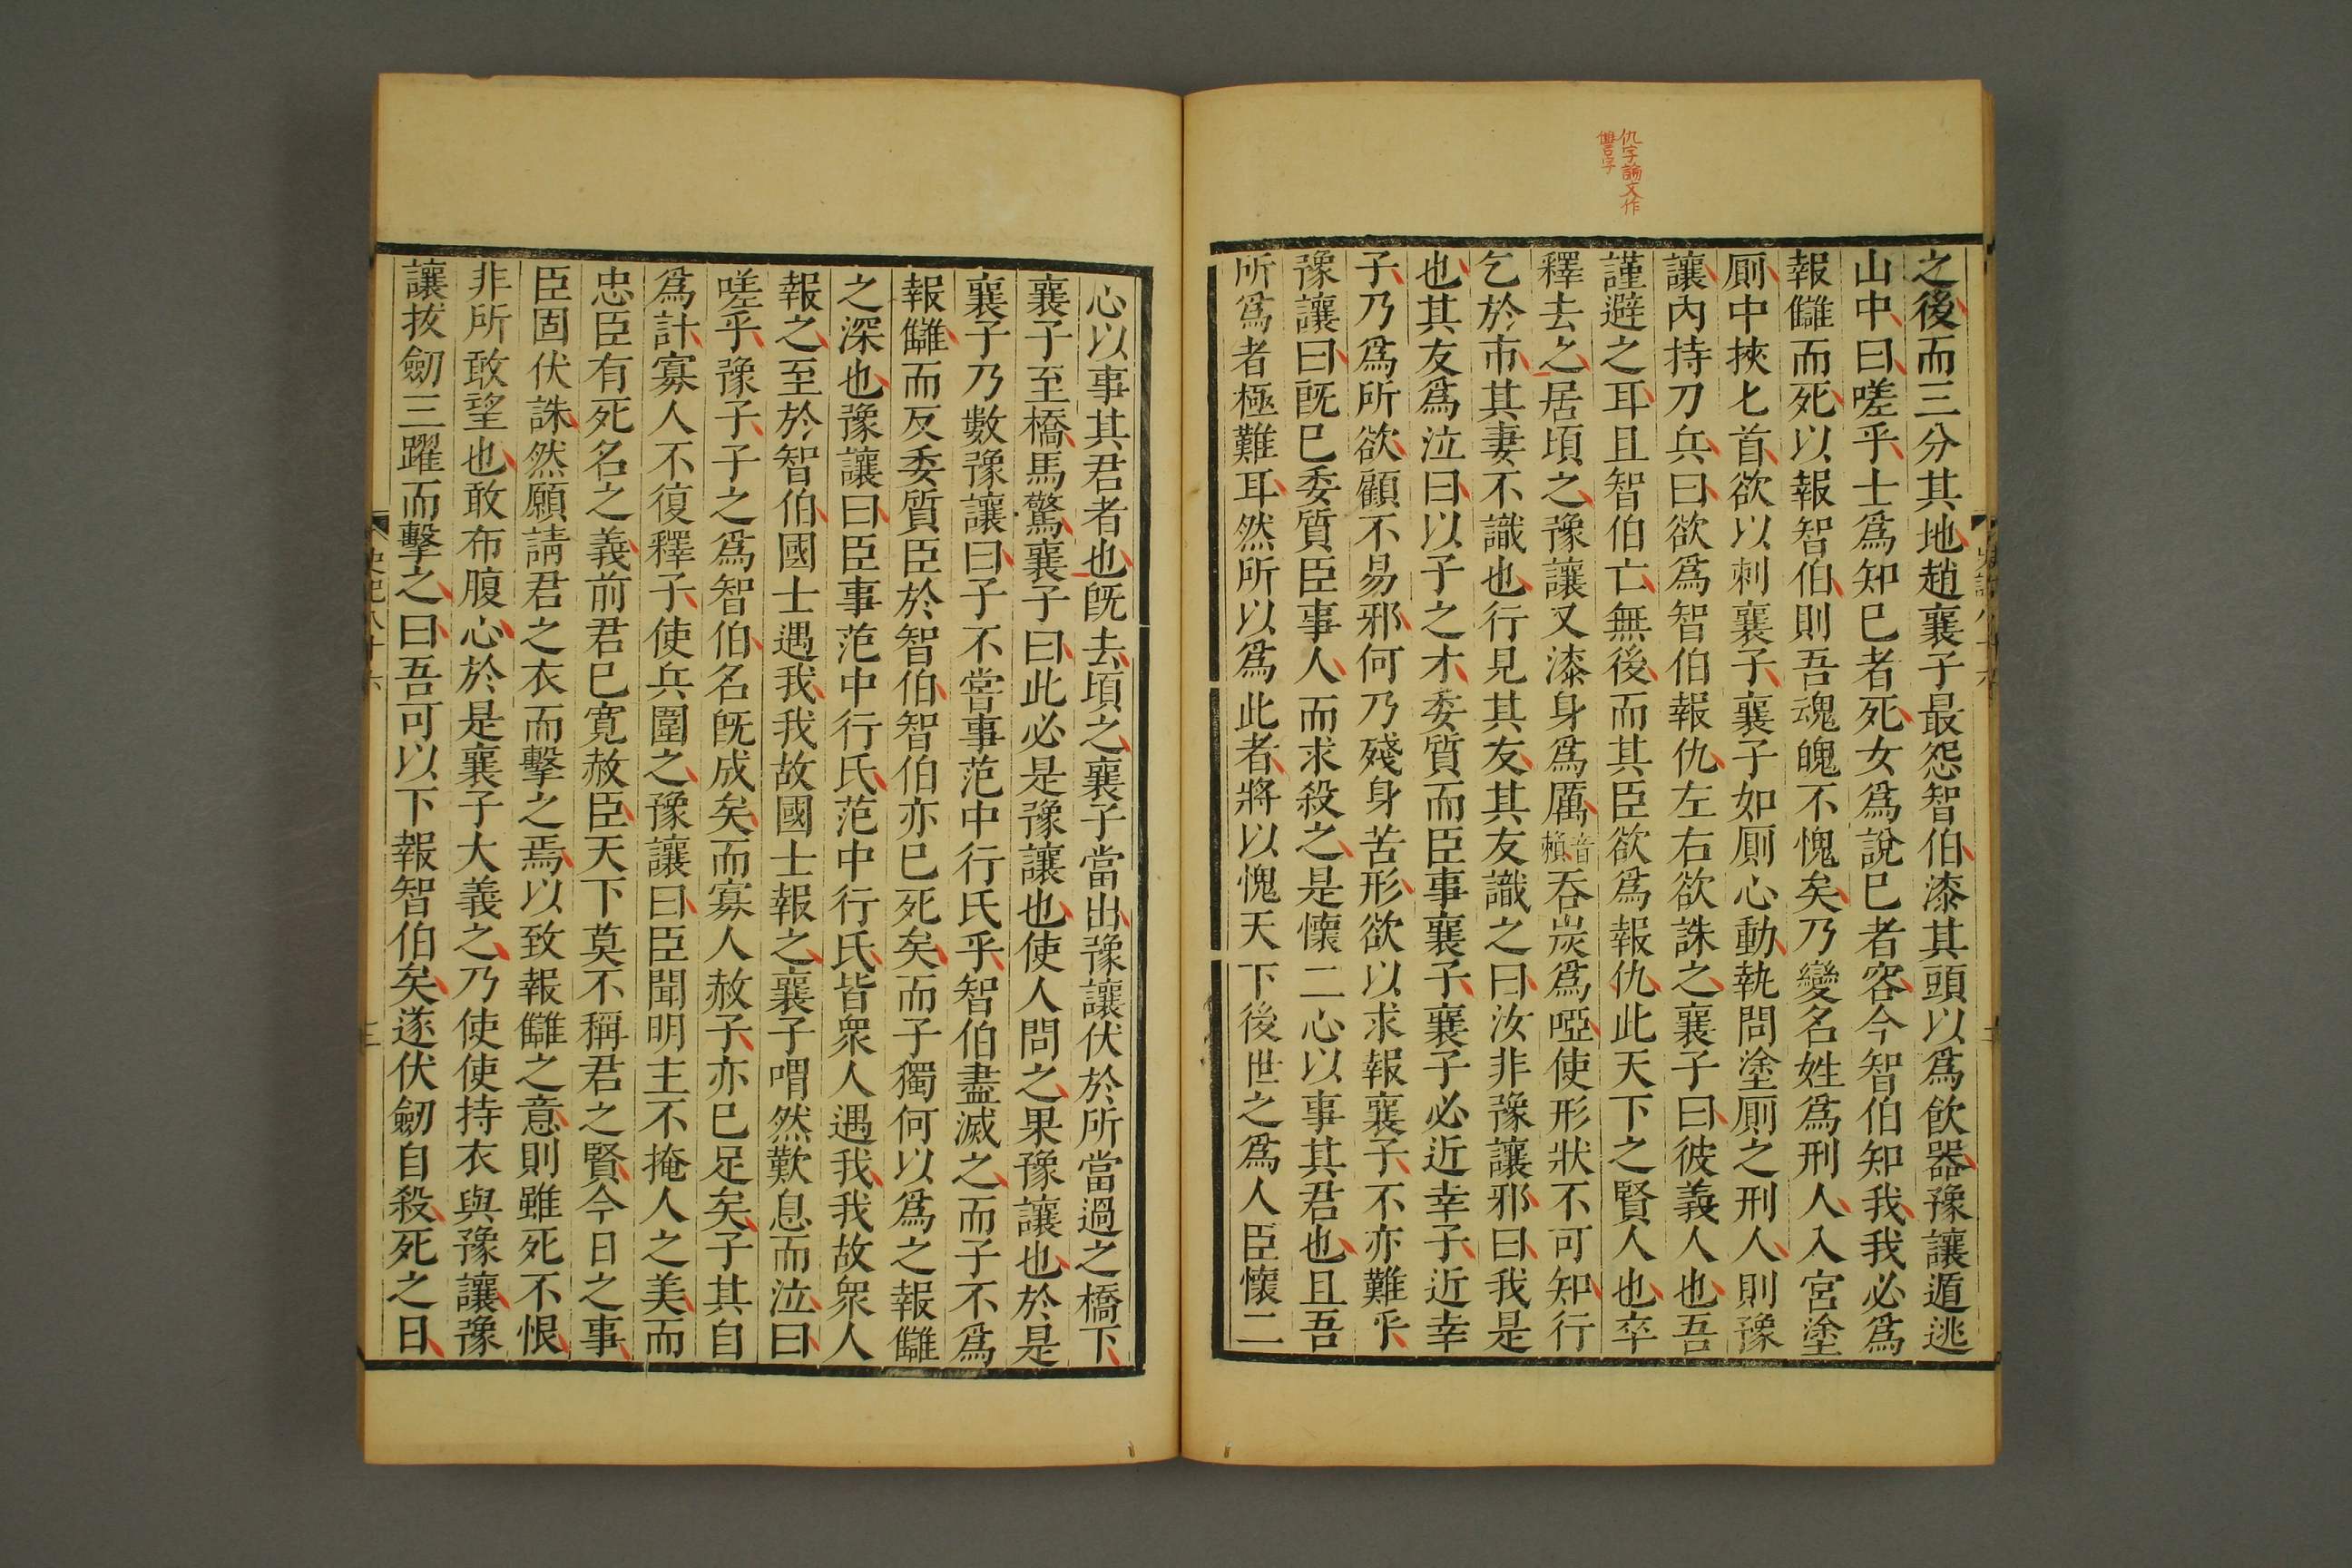 仇字諭文作
讐字
之後而三分其地趙襄子最怨智伯漆其頭以爲飲器豫讓遁逃
山中曰嗟乎士爲知已者死女爲說已者容今智伯知我我必爲
報讎而死以報智伯則吾魂魄不愧矣乃變名姓爲刑人入宮塗
厠中挾匕首欲以刺襄子襄子如厠心動執問塗厠之刑人則豫
讓內持刀兵曰欲爲智伯報仇左右欲誅之襄子曰彼義人也吾
謹避之耳且智伯亡無後而其臣欲爲報仇此天下之賢人也卒
釋去之居頃之豫讓又漆身爲厲音賴吞炭爲啞使形狀不可知行
乞於市其妻不識也行見其友其友識之曰汝非豫讓邪曰我是
也其友爲泣曰以子之才委質而臣事襄子襄子必近幸子近幸
子乃爲所欲顧不易邪何乃殘身苦形欲以求報襄子不亦難乎
豫讓曰旣已委質臣事人而求殺之是懷二心以事其君也且吾
所爲者極難耳然所以爲此者將以愧天下後世之爲人臣懷二
心以事其君者也旣去頃之襄子當出豫讓伏於所當過之橋下
襄子至橋馬驚襄子曰此必是豫讓也使人問之果豫讓也於是
襄子乃數豫讓曰子不嘗事范中行氏乎智伯盡滅之而子不爲
報讎而反委質臣於智伯智伯亦已死矣而子獨何以爲之報讎
之深也豫讓曰臣事范中行氏范中行氏皆衆人遇我我故衆人
報之至於智伯國士遇我我故國士報之襄子喟然歎息而泣曰
嗟乎豫子子之爲智伯名旣成矣而寡人赦子亦已足矣子其自
爲計寡人不復釋子使兵圍之豫讓曰臣聞明主不掩人之美而
忠臣有死名之義前君已寬赦臣天下莫不稱君之賢今日之事
臣固伏誅然願請君之衣而擊之焉以致報讎之意則雖死不恨
非所敢望也敢布腹心於是襄子大義之乃使使持衣與豫讓豫
讓拔劒三躍而擊之曰吾可以下報智伯矣遂伏劒自殺死之日
史記八十六
三